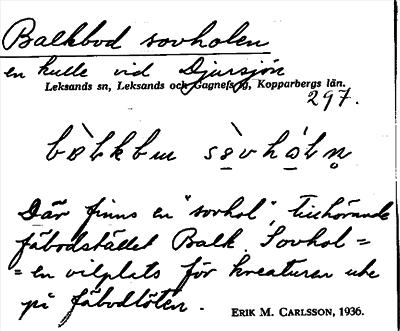 Balkbod sovholen
en kulle vid Djursjön
Leksands sn, Leksands och Gagnefs tg, Kopparbergs län.
297.
bàlkbɯ sòvhóln̥
Där finns en "sovhol", tillhörande
fäbodstället Balk. Sovhol =
= en vilplats för kreaturen ute
på fäbodlöten.
ERIK M. CARLSSON, 1936.